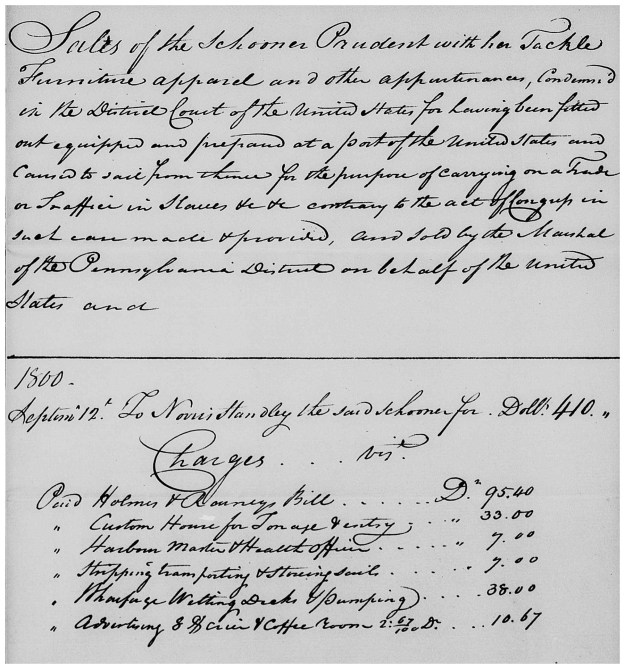 Sales of the Schooner Prudent with her Tackle
Furniture apparel and other appurtenances, Condemn'd
in the District Court of the United States for having been fitted
out equipped and prepared at a port of the United States and
Caused to sail from thence for the purpose of carrying on a Trade
or Traffic in Slaves &c &c contrary to the act of Congress in
such case made & provided, and sold by the Marshal
of the Pennsylvania District on behalf of the United
States and
1800.
Septemr 12t. To Norris Standley the said schooner for . Dolls. 410. "
Charges . . . vizt.
Paid Holmes & Bill . . . . . . . Ds. 95.40
" Custom House for Tonage & entry . . . " 33.00
" Harbour Master & Health officer . . . . . " 7.00
" Stripping transporting & Stowing sails . . . . . 7.00
" Wharfage Wetting Decks & Pumping . . . . 38.00
" Advertising & Crier & Coffee room 2. 67/100 D. . . . 10.67